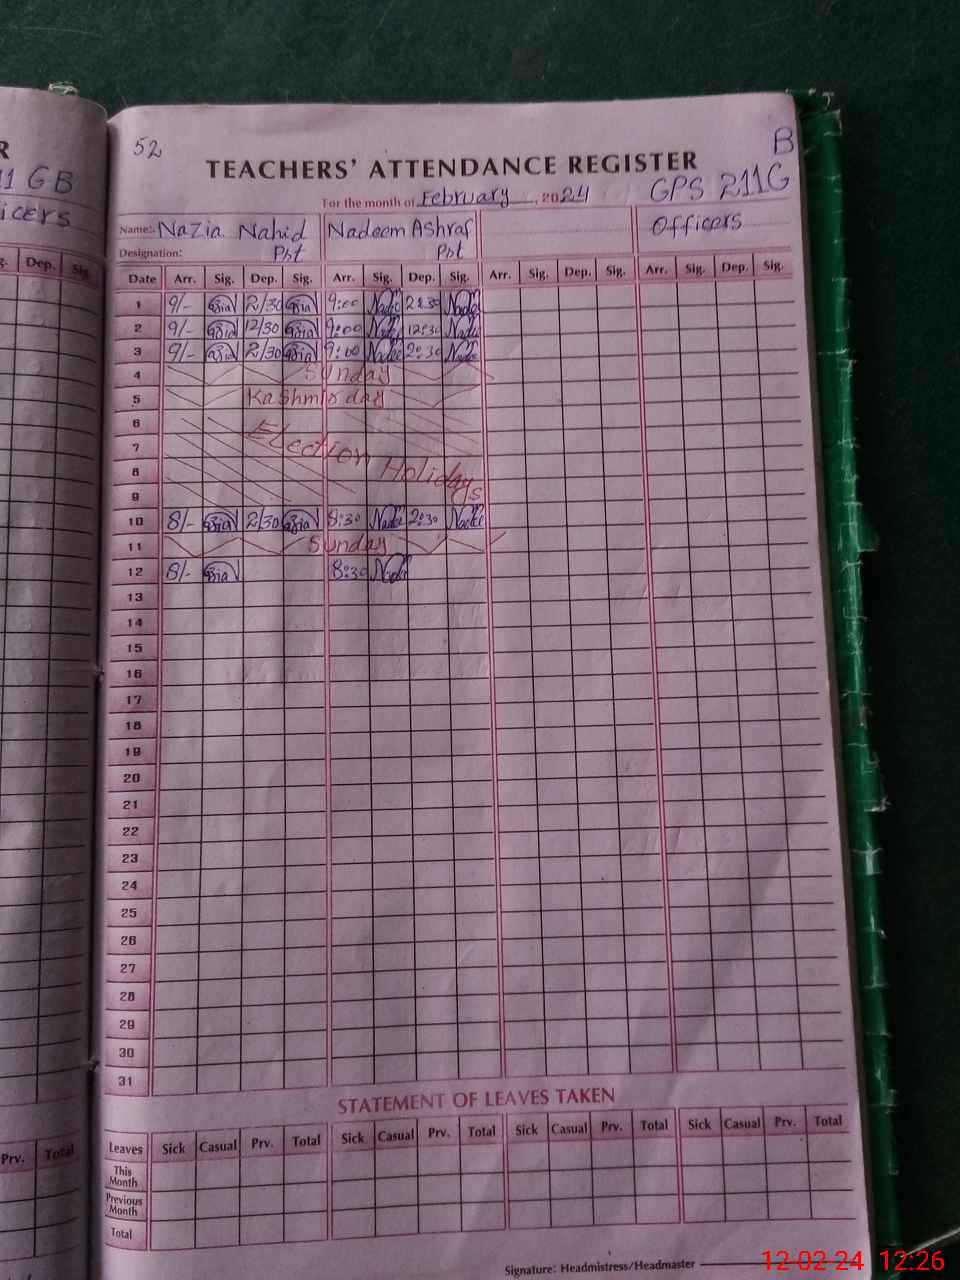 52
B
R
TEACHERS' ATTENDANCE REGISTER
11 GB
For the month of February, 2024
GPS 211G
icers
Name:- Nazia Nahid Nadeem Ashraf Officers
Designation: Pst Pst
g. Dep. Sig.
Date Arr. Sig. Dep. Sig. Arr. Sig. Dep. Sig. Arr. Sig. Dep. Sig. Arr. Sig. Dep. Sig.
1 9/- 2/30 9:00 2:30
2 9/- 12/30 9:00 12:30
3 9/- 2/30 9:00 2:30
4 Sunday
5 Kashmir day
6
7 Election Holidays
8
9
10 8/- 2/30 8:30 2:30
11 Sunday
12 8/- 8:30
13
14
15
16
17
18
19
20
21
22
23
24
25
26
27
28
29
30
31
STATEMENT OF LEAVES TAKEN
Prv. Total
Leaves Sick Casual Prv. Total Sick Casual Prv. Total Sick Casual Prv. Total Sick Casual Prv. Total
This Month
Previous Month
Total
Signature: Headmistress/Headmaster
12 02 24 12:26